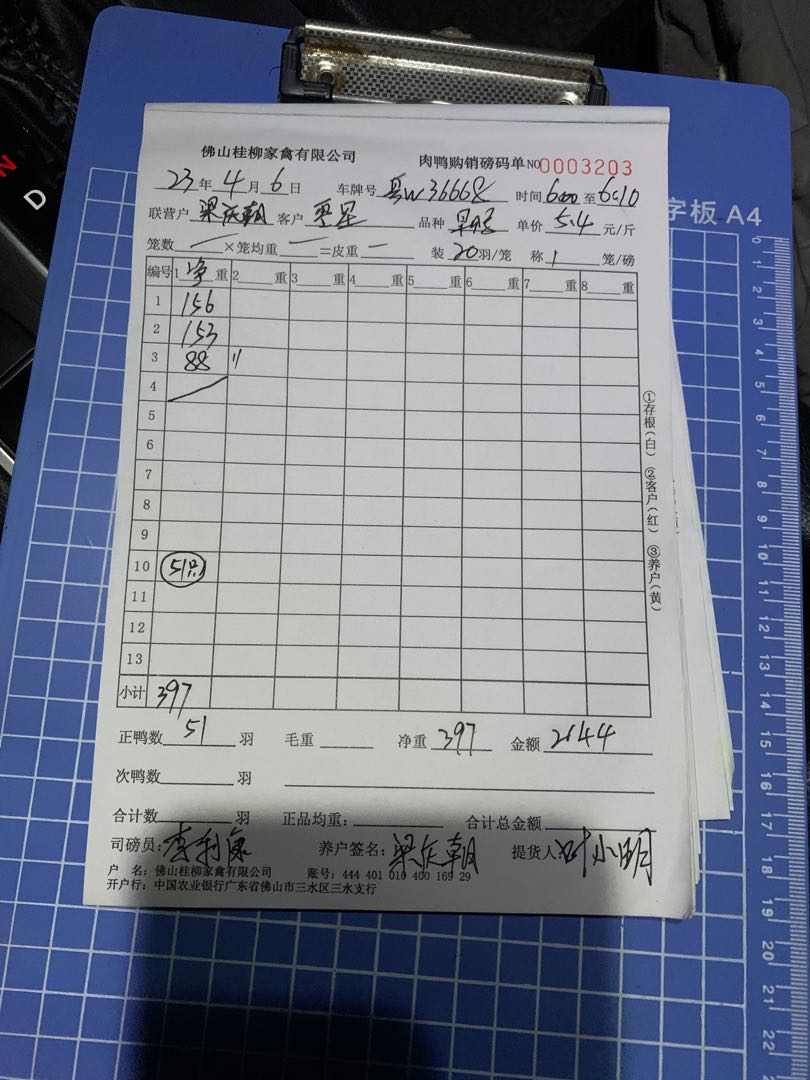 佛山桂柳家禽有限公司 肉鸭购销磅码单 NO 0003203
23年4月6日 车牌号 粤W36668 时间 6:00 至 6:10
联营户 梁庆朝 客户 星 品种 单价 5.4 元/斤
笼数 — ×笼均重 — =皮重 — 装 20 羽/笼 称 1 笼/磅
编号 1 净 重 2 重 3 重 4 重 5 重 6 重 7 重 8 重
1 156
2 153
3 88 11
4
5
6
7
8
9
10 51只
11
12
13
小计 397
①存根(白) ②客户(红) ③养户(黄)
正鸭数 51 羽 毛重 净重 397 金额 2144
次鸭数 羽
合计数 羽 正品均重: 合计总金额
司磅员: 李利康 养户签名: 梁庆朝 提货人: 叶小明
户 名: 佛山桂柳家禽有限公司 账号: 444 401 010 400 169 29
开户行: 中国农业银行广东省佛山市三水区三水支行
字板 A4
0
1
2
3
4
5
6
7
8
9
10
11
12
13
14
15
16
17
18
19
20
21
22
N
D